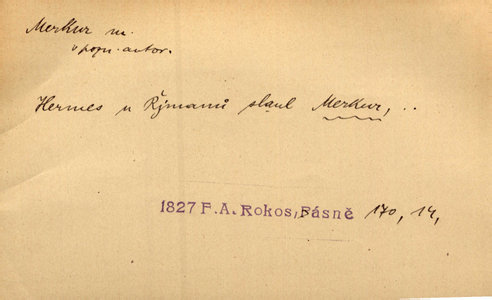 Merkur m.
v pozn. autor.
Hermes u Rýmanů slaul Merkur, ..
1827 F. A. Rokos, Básně 170, 14,